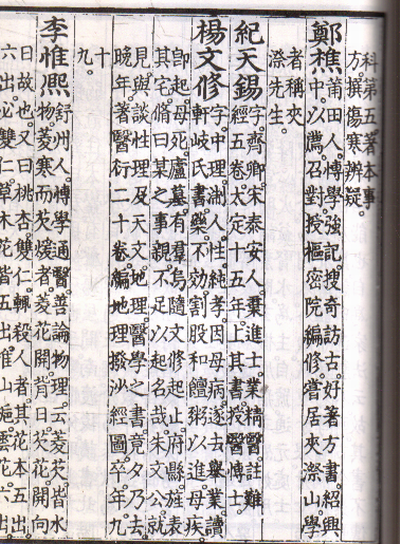 科第五著本事
方撰傷寒辨疑。
鄭樵 莆田人。博學強記搜奇訪古。好著方書。紹興
中。以薦召對。授樞密院編修。嘗居夾漈山學
者稱夾
漈先生。
紀天錫 字齊卿。宋泰安人。棄進士業。精醫註難
經五卷。大定十五年。上其書。授醫博士。
楊文修 字中理。浙人。性純孝。因母病。遂去舉業。讀
軒岐氏書。藥不効。割股和饘粥以進。母疾
卽起。母死廬墓。有羣烏隨文修起止。府縣旌表
其宅。脩曰。某之事親。不足以起名哉。朱文公就
見與談性理及天文地理醫學之書竟夕乃去
晚年著醫衍二十卷。編地理撥沙經圖。卒年九
十
九。
李惟熙 舒州人。博學通醫。善論物理。云菱芡皆水
物。菱寒而芡煖者。菱花開背日。芡花開向
日故也。又曰桃杏雙仁。輒殺人者。其花本五出。
六出。必雙仁。草木花皆五出。惟山梔雪花六出。